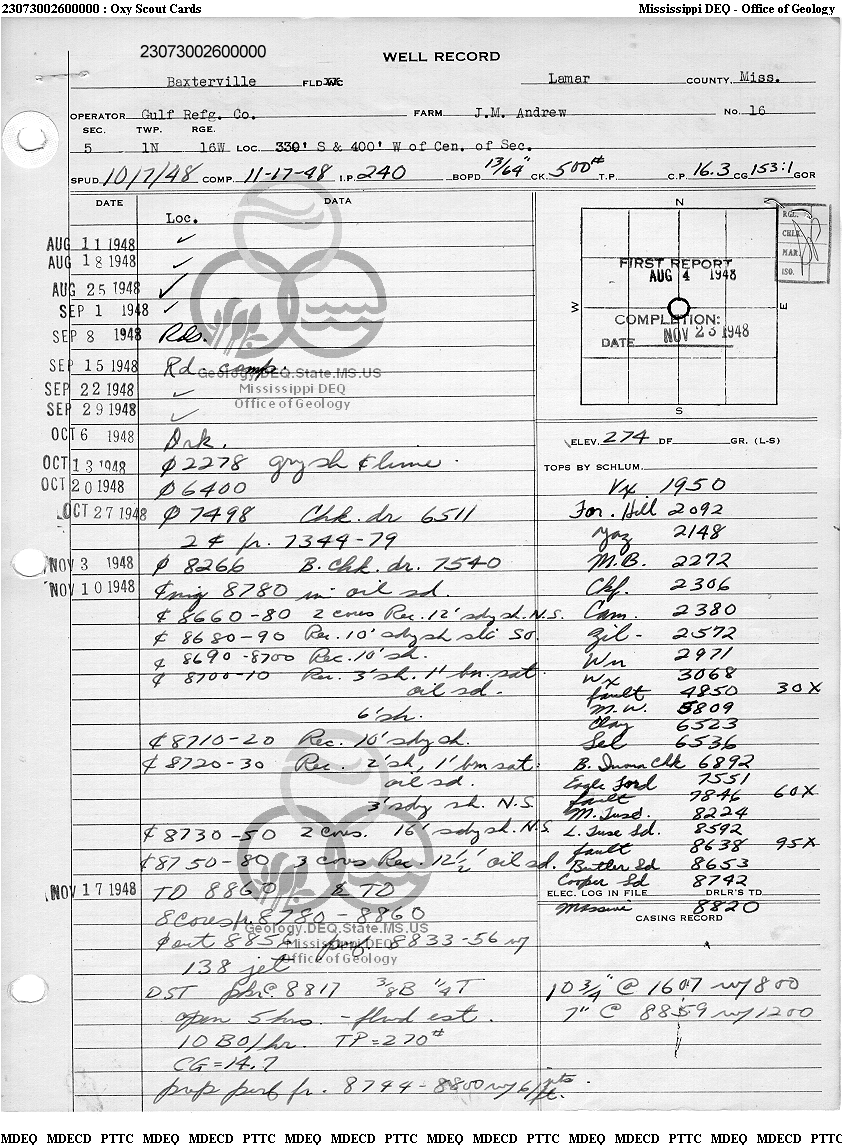 23073002600000 : Oxy Scout Cards Mississippi DEQ - Office of Geology
23073002600000
WELL RECORD
Baxterville FLD WC Lamar COUNTY, Miss.
OPERATOR Gulf Refg. Co. FARM J.M. Andrew No. 16
SEC. TWP. RGE.
5 1N 16W LOC. 330' S & 400' W of Cen. of Sec.
SPUD 10/7/48 COMP. 11-17-48 I.P. 240 BOPD 13/64" CK. 500# T.P. C.P. 16.3 CG 153:1 GOR
DATE DATA
Loc.
AUG 11 1948 ✓
AUG 18 1948 ✓
AUG 25 1948 ✓
SEP 1 1948 ✓
SEP 8 1948 Rds.
SEP 15 1948 Rd comp.
SEP 22 1948 ✓
SEP 29 1948 ✓
OCT 6 1948 Drk.
OCT 13 1948 Ø 2278 gry sh & lime.
OCT 20 1948 Ø 6400
OCT 27 1948 Ø 7498 Chk. dr 6511
2 ¢ fr. 7344-79
NOV 3 1948 Ø 8266 B. Chk. dr. 7540
NOV 10 1948 ¢nig 8780 in oil sd.
¢ 8660-80 2 cores Rec. 12' sdy sh. N.S.
¢ 8680-90 Rec. 10' sdy sh sli So.
¢ 8690-8700 Rec. 10' sh.
¢ 8700-10 Rec. 3' sh. 1' bn. sat.
oil sd.
6' sh.
¢ 8710-20 Rec. 10' sdy sh.
¢ 8720-30 Rec. 2' sh, 1' bn sat.
oil sd.
3' sdy sh. N.S.
¢ 8730-50 2 cores. 16' sdy sh. N.S.
¢ 8750-80 3 cores Rec. 12 1/2' oil sd.
NOV 17 1948 TD 8860 & TD
8 cores fr 8780-8860
¢ent 8856 perf. 8833-56 w/
138 jet
DST pkr. 8817 3/8 B 1/4 T
open 5 hrs. - flwd est.
10 BO/hr. TP=270#
CG=14.7
prep perf fr. 8794-8800 w/ 6/pts
ft.
RGL.
CHLR.
MAR.
ISO.
N
FIRST REPORT
AUG 4 1948
W E
COMPLETION:
DATE NOV 23 1948
S
ELEV. 274 DF GR. (L-S)
TOPS BY SCHLUM.
Vx 1950
For. Hill 2092
Yaz 2148
M.B. 2272
Ckf. 2306
Cam. 2380
Zil - 2572
Wn 2971
Wx 3068
fault 4850 30X
M.W. 5809
Clay 6523
Sel 6536
B. Chk 6892
Eagle Ford 7551
fault 7846 60X
M. Tusc. 8224
L. Tusc Sd. 8592
fault 8638 95X
Butler Sd 8653
Cooper Sd 8742
ELEC. LOG IN FILE DRLR'S TD
Massive 8820
CASING RECORD
10 3/4" @ 1607 w/ 800
7" @ 8859 w/ 1200
Geology.DEQ.State.MS.US
Mississippi DEQ
Office of Geology
Geology.DEQ.State.MS.US
Mississippi DEQ
Office of Geology
MDEQ MDECD PTTC MDEQ MDECD PTTC MDEQ MDECD PTTC MDEQ MDECD PTTC MDEQ MDECD PTTC MDEQ MDECD PTTC